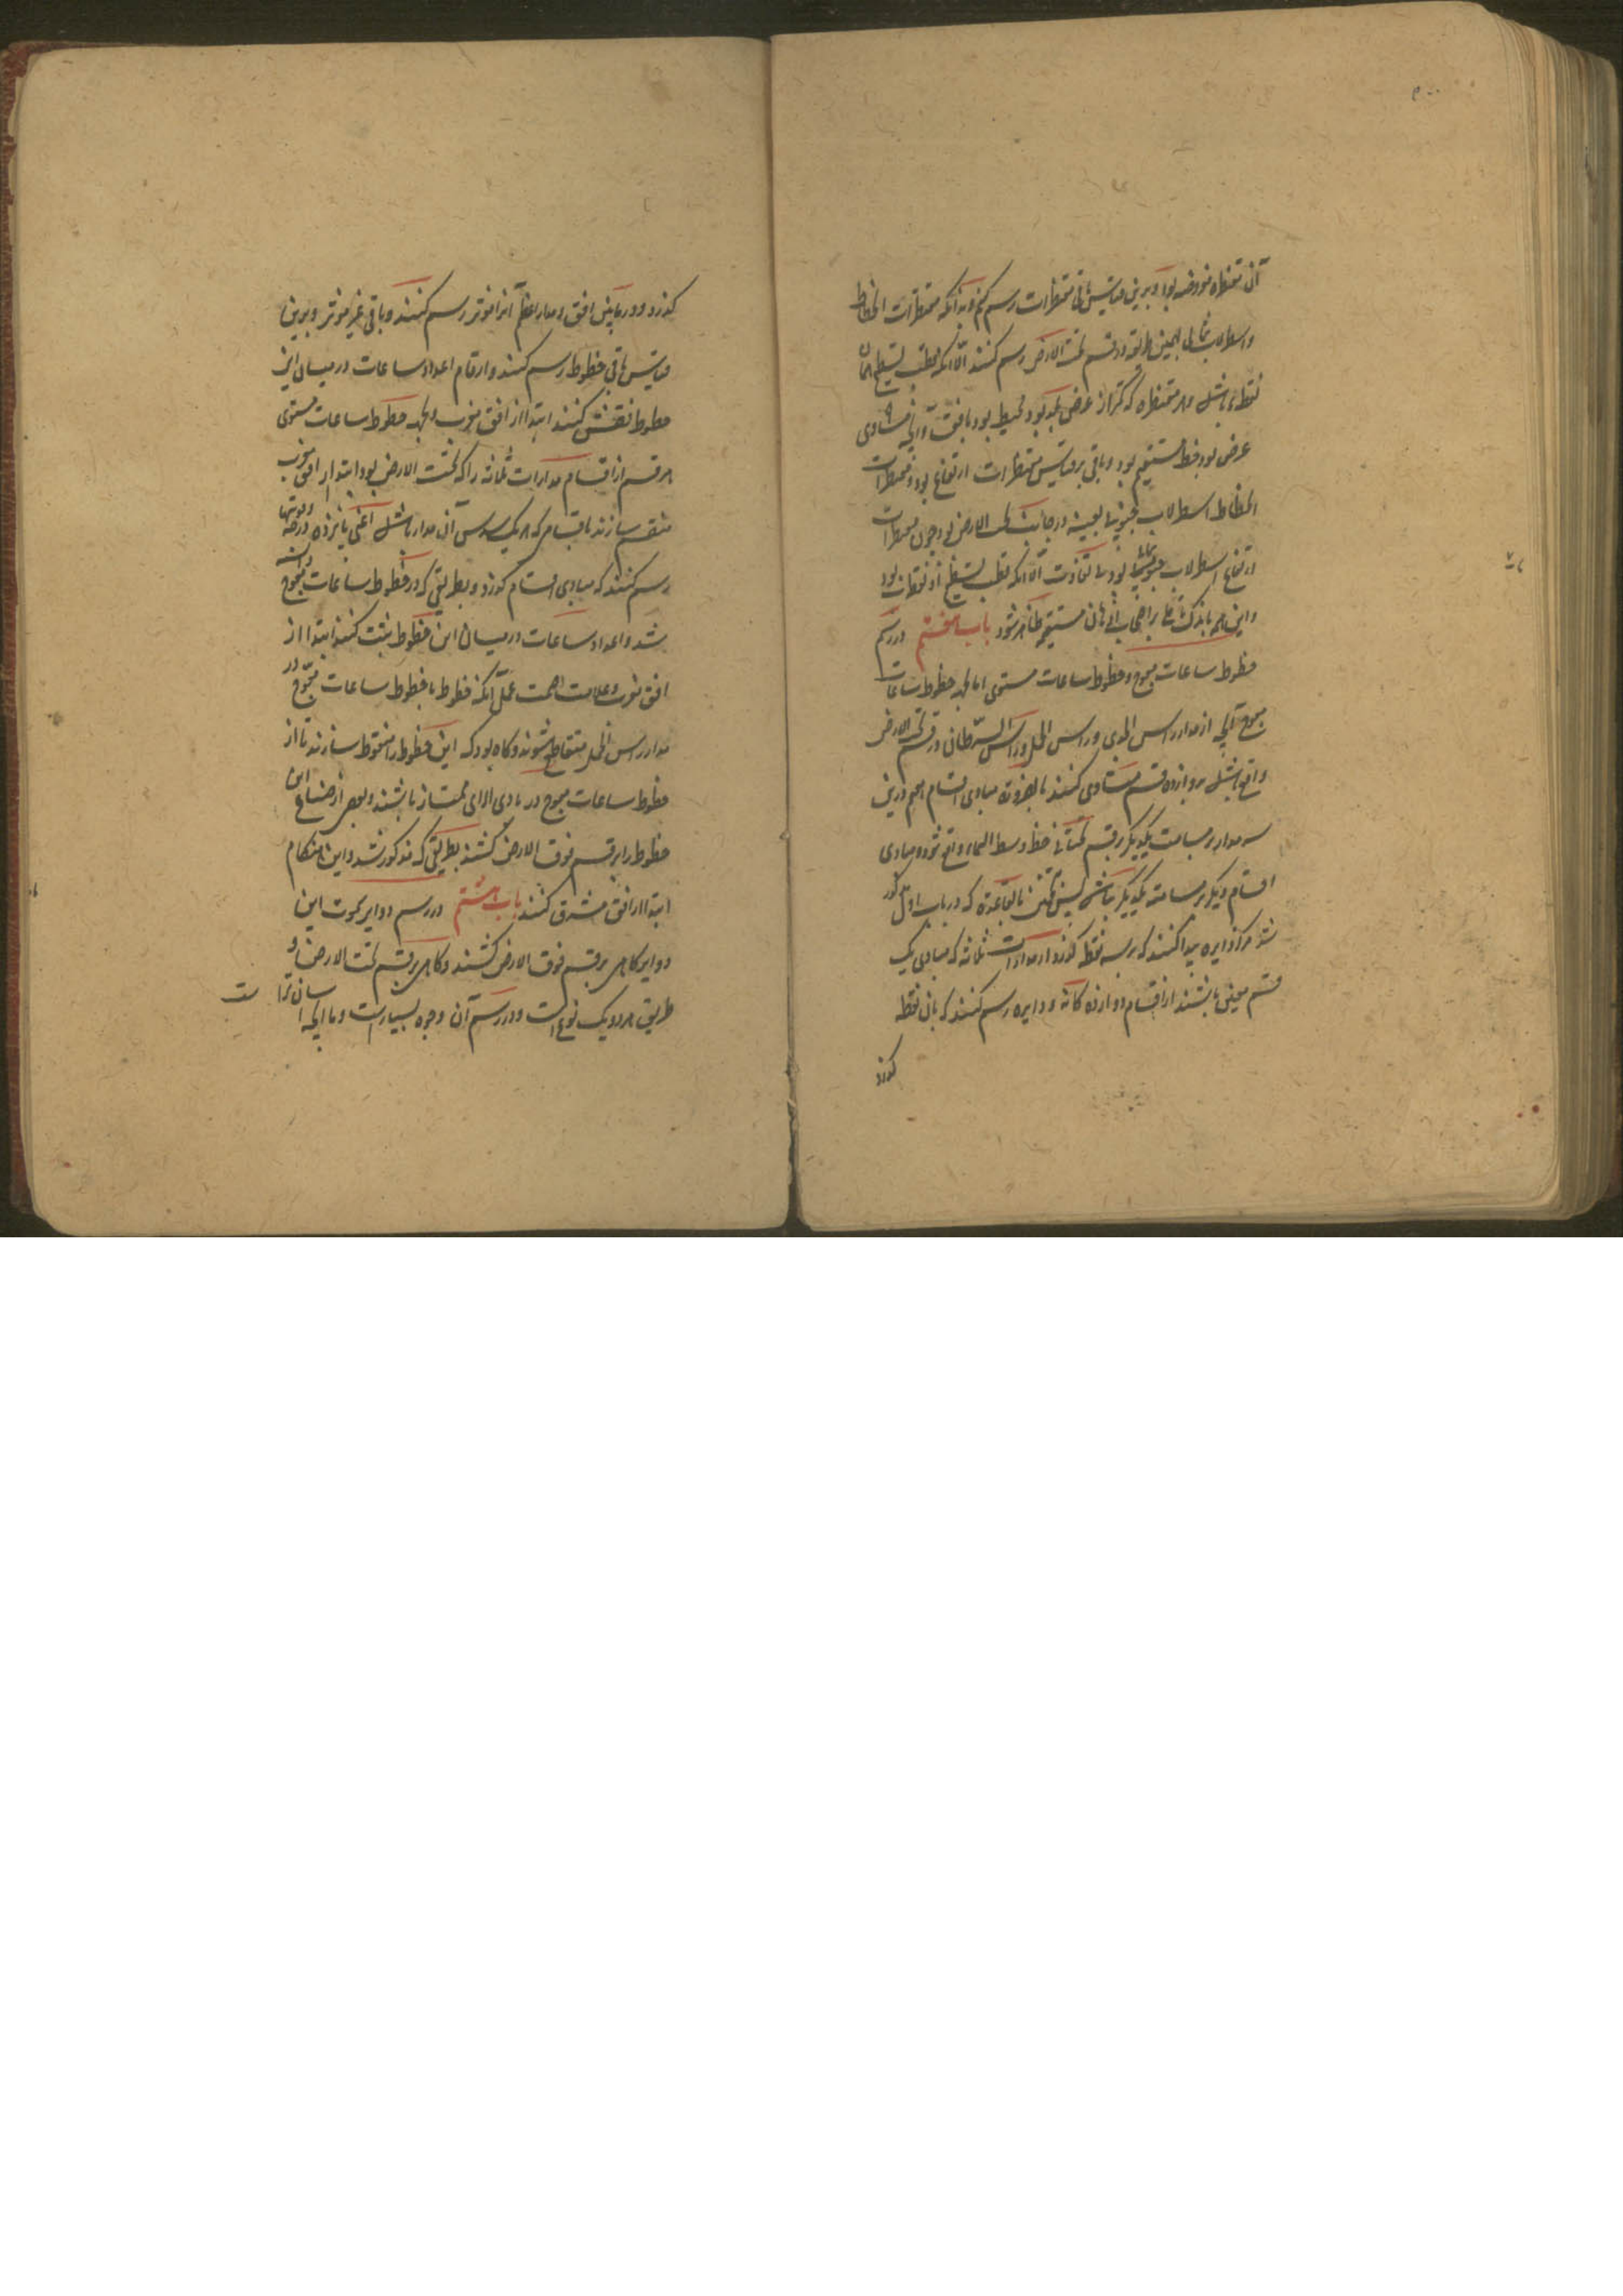 آن مقنطره مفروضه بود و برین قیاس باقی مقنطرات رسم کنیم و بدانکه مقنطرات انحطاط
و اسطرلاب شمالی بهمین طریقه در قسم تحت الارض رسم کنند الا آنکه قطب تسطیح همان
نقطه باشد و هر مقنطره که کمتر از عرض بلد بود محیط بود بافق و آنچه مساوی
عرض بود خط مستقیم بود و باقی بر قیاس مقنطرات ارتفاع بود و مقنطرات
انحطاط اسطرلاب جنوبی بعینه در جانب تحت الارض بود چون مقنطرات
ارتفاع اسطرلاب شمالی بود بی تفاوت الا آنکه قطب تسطیح او نقطه بود
و این همه باندک تامل بر اصحاب اذهان مستقیمه ظاهر شود باب هفتم در رسم
خطوط ساعات معوج و خطوط ساعات مستوی اما بجهة خطوط ساعات
معوج آنچه از مدار راس الجدی و راس الحمل و راس السرطان در قسم تحت الارض
واقع باشد بدوازده قسم متساوی کنند بالضرورة مبادی اقسام هم درین
سه مدار بر مسامت یکدیگر در قسم تحتانی خط وسط السماء واقع شود و مبادی
اقسام دیگر بر مسامته یکدیگر نباشد پس بقاعده که در باب اول مذکور
شد مرکز دایره پیدا کنند که بر سه نقطه گذرد از مدارات ثلاثه که مبادی یک
قسم معین باشند از اقسام دوازده گانه و دایره رسم کنند که بان نقطه
گذرد
گذرد و در مابین افق و مدار اعظم آنرا موثر رسم کنند و باقی غیر موثر و برین
قیاس باقی خطوط رسم کنند و ارقام اعداد ساعات در میان این
خطوط نقش کنند ابتدا از افق مغرب و بجهة خطوط ساعات مستوی
هر قسم از اقسام مدارات ثلاثه را که تحت الارض بود ابتدا از افق مغرب
منقسم سازند باقسامی که هر یک سدس آن مدار باشد اعنی پانزده درجه و قوسها
رسم کنند که بمبادی اقسام گذرد و بطریقی که در خطوط ساعات معوج دانسته
شد و اعداد ساعات در میان این خطوط ثبت کنند ابتدا از
افق مغرب و علامت صحت عمل آنکه خطوط با خطوط ساعات معوج در
مدار راس الحمل متقاطع شوند و گاه بود که این خطوط را منقوط سازند تا از
خطوط ساعات معوج در بادی الرای ممتاز باشند و بعضی از صناع این
خطوط را بر قسم فوق الارض کشند بطریقی که مذکور شد و این هنگام
ابتدا از افق مشرق کنند باب هشتم در رسم دوایر سموت این
دوایر گاهی بر قسم فوق الارض کشند و گاهی بر قسم تحت الارض و
طریق هر دو یک نوع است و در رسم آن وجوه بسیارست و ما آنچه اسان تر است